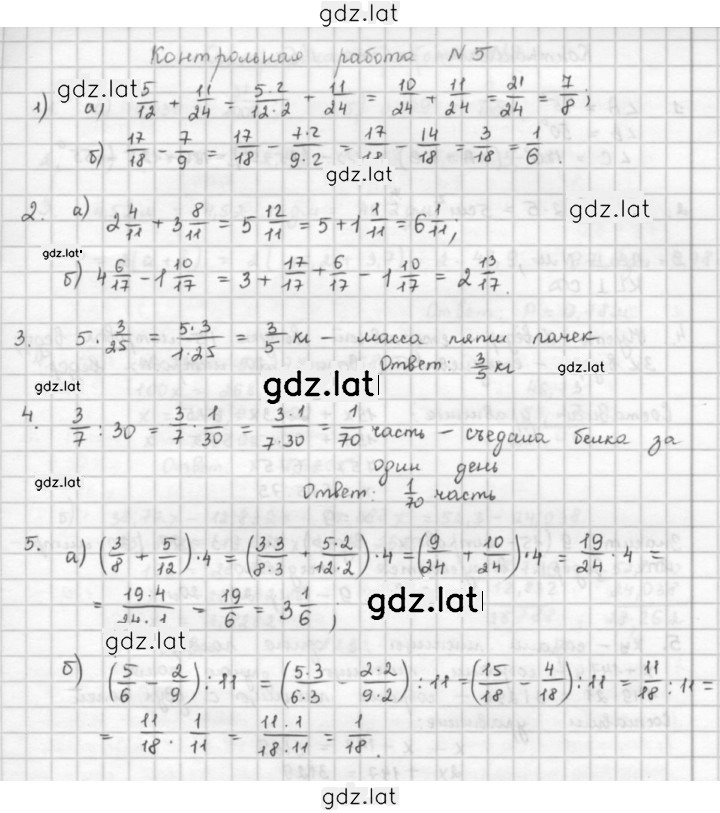 gdz.lat
Контрольная работа N 5
gdz.lat
1) а) 5/12 + 11/24 = 5·2/12·2 + 11/24 = 10/24 + 11/24 = 21/24 = 7/8;
б) 17/18 - 7/9 = 17/18 - 7·2/9·2 = 17/18 - 14/18 = 3/18 = 1/6.
gdz.lat
2. а) 2 4/11 + 3 8/11 = 5 12/11 = 5 + 1 1/11 = 6 1/11,
gdz.lat
gdz.lat
б) 4 6/17 - 1 10/17 = 3 + 17/17 + 6/17 - 1 10/17 = 2 13/17.
3. 5 · 3/25 = 5·3/1·25 = 3/5 кг - масса пяти пачек
Ответ: 3/5 кг
gdz.lat
gdz.lat
gdz.lat
4. 3/7 : 30 = 3/7 · 1/30 = 3·1/7·30 = 1/70 часть - съедала белка за
один день
gdz.lat
Ответ: 1/70 часть
5. а) (3/8 + 5/12) · 4 = (3·3/8·3 + 5·2/12·2) · 4 = (9/24 + 10/24) · 4 = 19/24 · 4 =
= 19·4/24·1 = 19/6 = 3 1/6;
gdz.lat
gdz.lat
б) (5/6 - 2/9) : 11 = (5·3/6·3 - 2·2/9·2) : 11 = (15/18 - 4/18) : 11 = 11/18 : 11 =
= 11/18 · 1/11 = 11·1/18·11 = 1/18.
gdz.lat